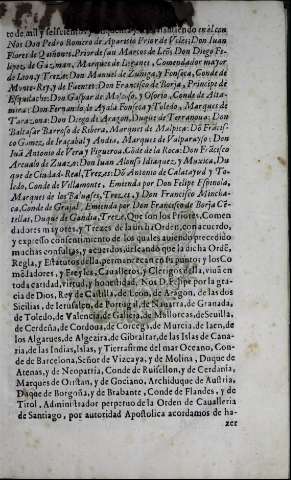 to de mil y seiscientos y cinquenta y
Nos Don Pedro Romero de Aparisio Prior de Vcles; Don Iuan
Flores de Quiñones, Prior de san Marcos de Leõ; Don Diego Fe-
lipez de Guzman, Marques de Leganes, Comendador mayor
de Leon, y Treze: Don Manuel de Zuñiga, y Fonseca, Conde de
Monte-Rey, y de Fuentes: Don Francisco de Borja, Principe de
Esquilache: Don Gaspar de Moscoso, y Osorio, Conde de Alta-
mira: Don Fernando de Ayala Fonseca y Toledo, Marques de
Taraçona: Don Diego de Aragon, Duque de Terranoua: Don
Baltasar Barroso de Ribera, Marques de Malpica: Dõ Francis-
co Gamez, de Iraçabal y Andia, Marques de Valparayso: Don
Iuã Antonio de Vera y Figueroa Cõde de la Roca: Don Frãcisco
Areualo de Zuazo: Don Iuan Alonso Idiaquez, y Muxica, Du
que de Ciudad-Real, Trezes: Dõ Antonio de Calatayud y To-
ledo, Conde de Villamonte, Emienda por Don Felipe Espinola,
Marques de los Balbases, Treze, y Don Francisco Mincha-
ca, Conde de Grajal, Emienda por Don Francisco de Borja Cẽ-
tellas, Duque de Gandia, Treze, Que son los Priores, Comen
dadores mayores, y Trezes de la dicha Orden, con acuerdo,
y expresso consentimiento de los quales auiendo precedido
muchas consultas, y acuerdos, deseando que la dicha Ordẽ,
Regla, y Estatutos della, permanezcan en sus puntos y los Co
mẽdadores, y Freyles, Caualleros, y Clerigos della, viuã en
toda caridad, virtud, y honestidad. Nos D. Felipe por la gra-
cia de Dios, Rey de Castilla, de Leon, de Aragon, de las dos
Sicilias, de Ierusalen, de Portugal, de Nauarra, de Granada,
de Toledo, de Valencia, de Galicia, de Mallorcas, de Seuilla,
de Cerdeña, de Cordoua, de Corcega, de Murcia, de Iaen, de
los Algarues, de Algezira, de Gibraltar, de las Islas de Cana-
ria, de las Indias, Islas, y Tierrafirme del mar Oceano, Con-
de de Barcelona, Señor de Vizcaya, y de Molina, Duque de
Atenas, y de Neopatria, Conde de Ruisellon, y de Cerdania,
Marques de Oristan, y de Gociano, Archiduque de Austria,
Duque de Borgoña, y de Brabante, Conde de Flandes, y de
Tirol, Administrador perpetuo de la Orden de Caualleria
de Santiago, por autoridad Apostolica acordamos de ha-
zer